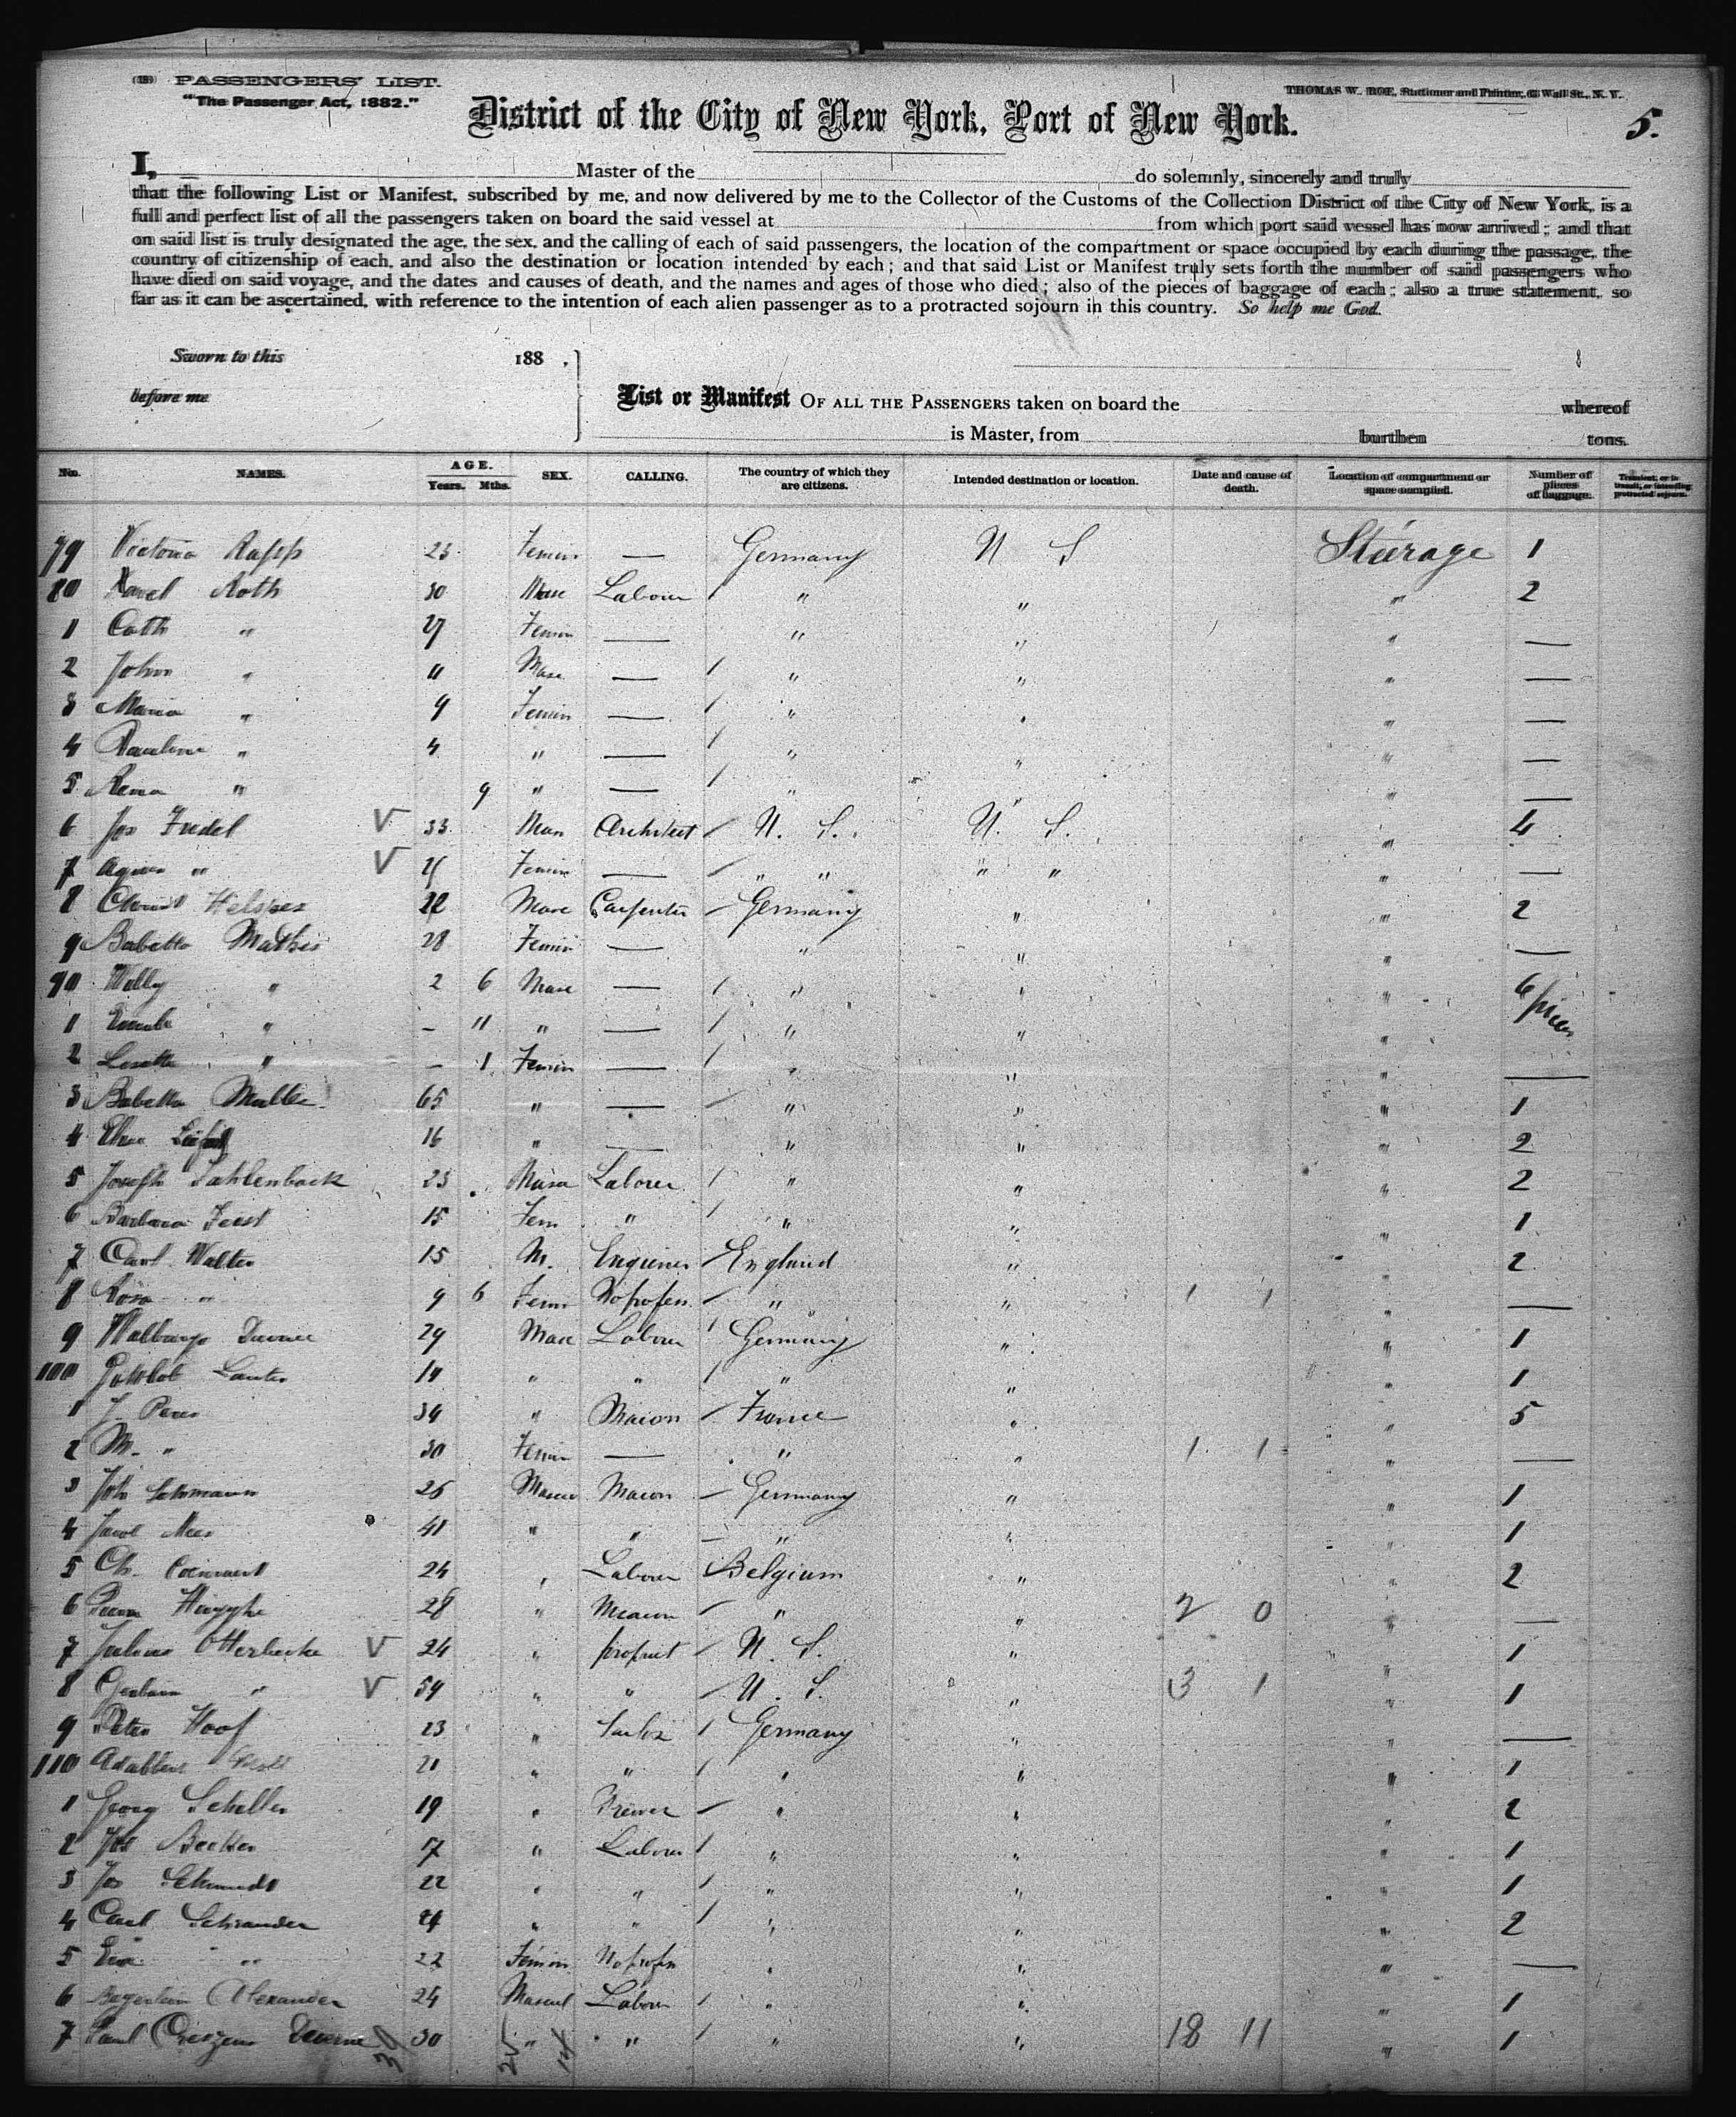 (18) PASSENGERS' LIST.
"The Passenger Act, 1882."
THOMAS W. ROE, Stationer and Printer, 63 Wall St., N. Y.
District of the City of New York, Port of New York.
5.
I, Master of the do solemnly, sincerely and truly
that the following List or Manifest, subscribed by me, and now delivered by me to the Collector of the Customs of the Collection District of the City of New York, is a
full and perfect list of all the passengers taken on board the said vessel at from which port said vessel has now arrived; and that
on said list is truly designated the age, the sex, and the calling of each of said passengers, the location of the compartment or space occupied by each during the passage, the
country of citizenship of each, and also the destination or location intended by each; and that said List or Manifest truly sets forth the number of said passengers who
have died on said voyage, and the dates and causes of death, and the names and ages of those who died; also of the pieces of baggage of each; also a true statement, so
far as it can be ascertained, with reference to the intention of each alien passenger as to a protracted sojourn in this country. So help me God.
Sworn to this 188 .
before me
List or Manifest OF ALL THE PASSENGERS taken on board the whereof
is Master, from burthen tons.
No. NAMES. AGE. Years. Mths. SEX. CALLING. The country of which they are citizens. Intended destination or location. Date and cause of death. Location of compartment or space occupied. Number of pieces of baggage. Transient, or in transit, or intending protracted sojourn.
79 Victoria Rapp 23 Femin — Germany U S Steerage 1
80 Roth 30 Masc Labour / " " " 2
1 Cath " 27 Femin — " " " —
2 John " 11 Masc — / " " " —
3 Maria " 9 Femin — / " " " —
4 Pauline " 4 " — / " " " —
5 " 9 " — / " " " —
6 Jos V 33 Man Architect / U. S. U. S. " 4
7 " V Femin — / " " " " " —
8 22 Masc Carpenter / Germany " " 2
9 Babette Mathis 28 Femin — " " " —
90 Willy " 2 6 Masc — / " " " 6 pieces
1 " — 11 " — / " " "
2 " — 1 Femin — / " " " —
3 Babette 65 " — / " " " 1
4 16 " — " " " 2
5 Joseph Sahlenback 23 Labourer / " " " 2
6 Barbara Feist 15 Fem " / " " " 1
7 Carl Walter 15 M. Engineer / England " " 2
8 Rosa " 9 6 Femin No profess / " " 1 1 " —
9 29 Masc Labour / Germany " " 1
100 Gottlob " " / " " " 1
1 J. 34 " Macon / France " " 5
2 M. " 30 Femin — " " 1 1 " —
3 Joh 26 Macon / Germany " " 1
4 Jacob 41 " " — " " " 1
5 Ch. 24 " Labour Belgium " " 2
6 28 " Macon / " " 2 0 " —
7 Julius Otterbecke V 24 " propriet / U. S. " " 1
8 " V 54 " " / U. S. " 3 1 " 1
9 Peter Hoof 23 " / Germany " " —
110 21 " " / " " " 1
1 Georg Scheller 19 " Brewer / " " " 2
2 Jos Becker 17 " Labour / " " " 1
3 Jos Schmidt 22 " " / " " " 1
4 Carl Schrander " " / " " " 2
5 Eva " 22 Femin No profes " " " —
6 Alexander 24 Mascul Labour / " " " 1
7 30 " " / " " 18 11 " 1